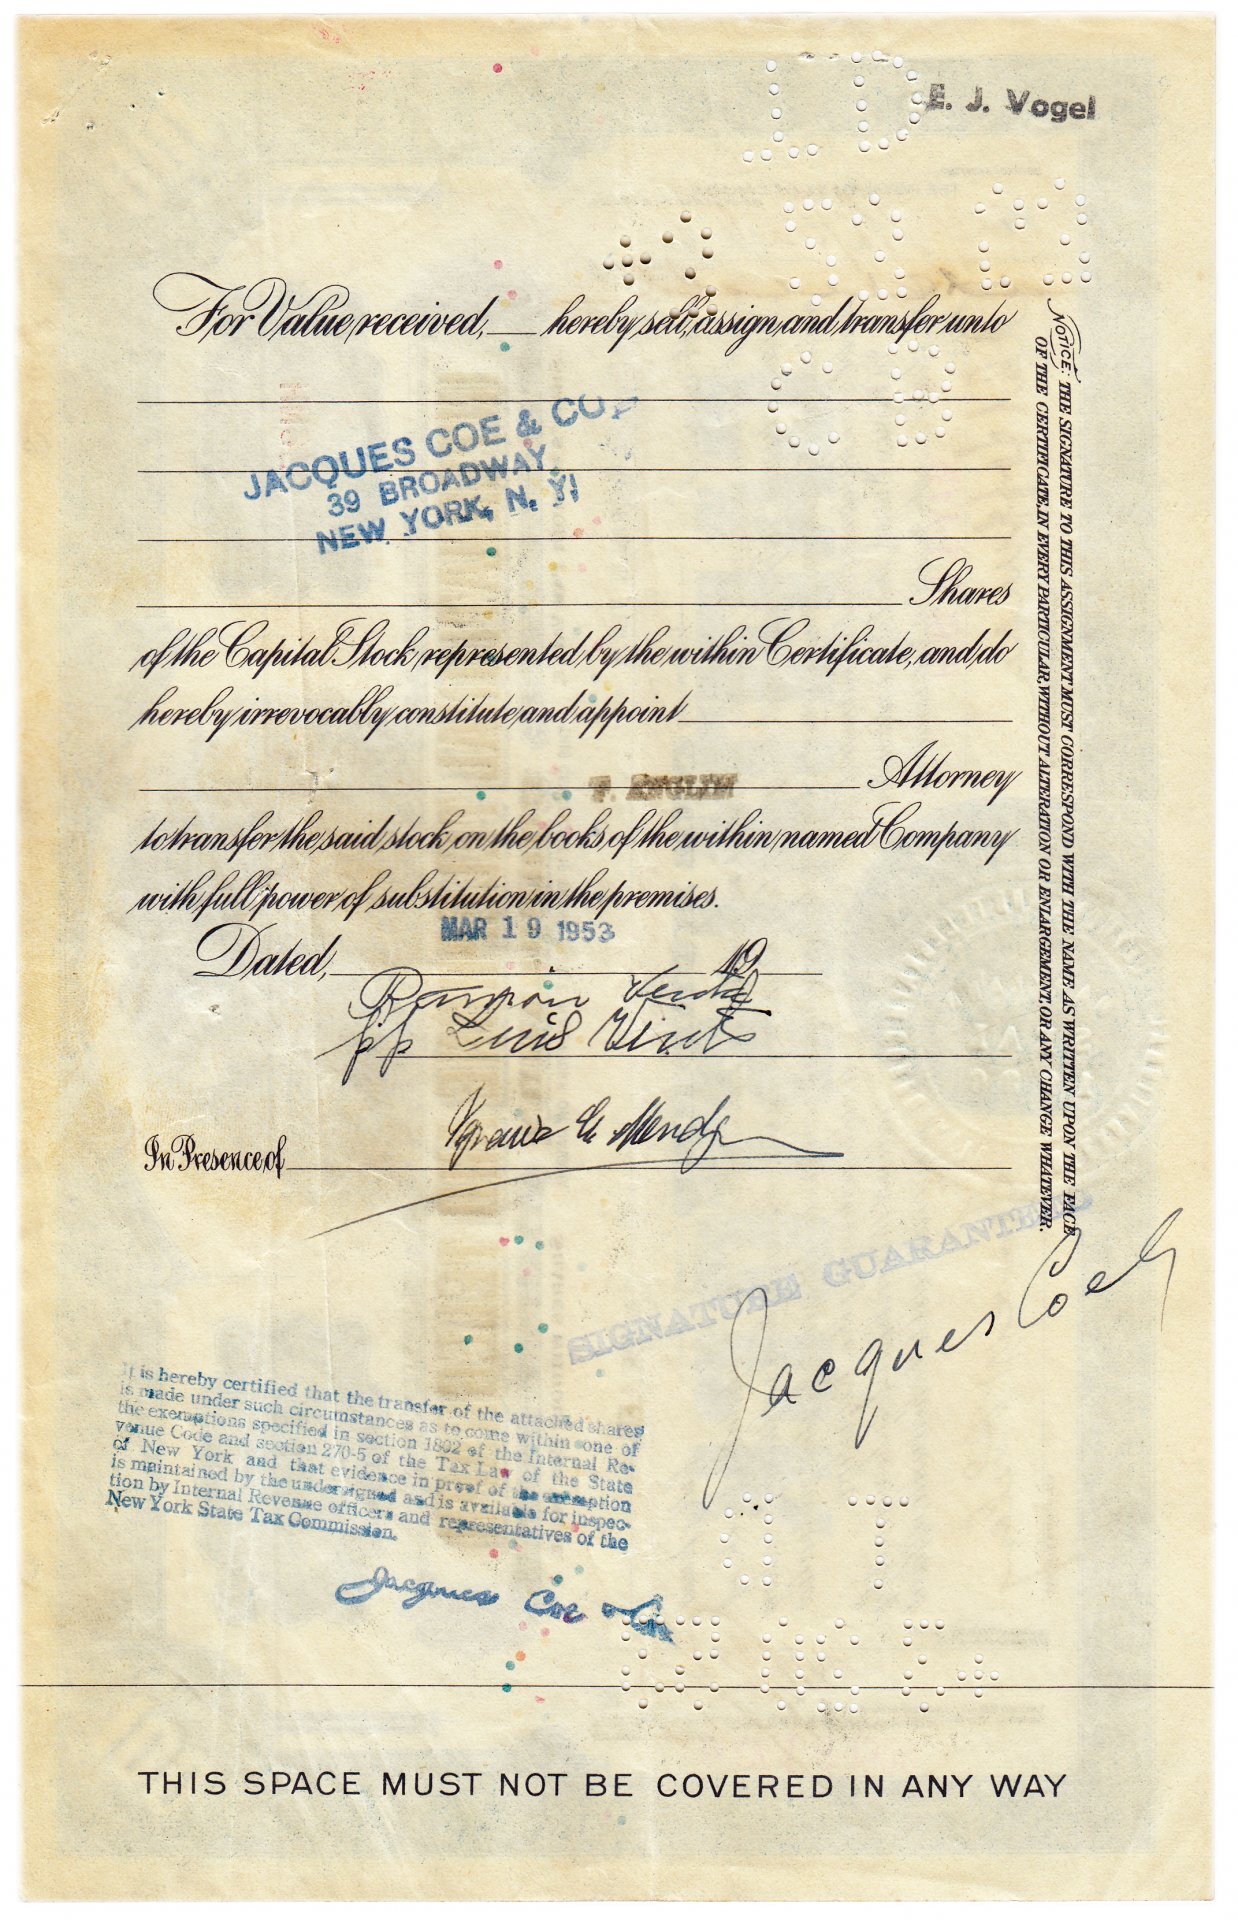 E. J. Vogel
For Value received, hereby sell, assign and transfer unto
JACQUES COE & CO.
39 BROADWAY,
NEW YORK, N. Y.
Shares
of the Capital Stock represented by the within Certificate, and do
hereby irrevocably constitute and appoint
Attorney
to transfer the said stock on the books of the within named Company
with full power of substitution in the premises.
MAR 19 1953
Dated, 19
pp Luis
In Presence of
NOTICE: THE SIGNATURE TO THIS ASSIGNMENT MUST CORRESPOND WITH THE NAME AS WRITTEN UPON THE FACE
OF THE CERTIFICATE, IN EVERY PARTICULAR, WITHOUT ALTERATION OR ENLARGEMENT, OR ANY CHANGE WHATEVER.
SIGNATURE GUARANTEED
Jacques Coe
It is hereby certified that the transfer of the attached shares
is made under such circumstances as to come within one of
the exemptions specified in section 1802 of the Internal Re-
venue Code and section 270-5 of the Tax Law of the State
of New York and that evidence in proof of the exemption
is maintained by the undersigned and is available for inspec-
tion by Internal Revenue officers and representatives of the
New York State Tax Commission.
Jacques Coe & Co.
THIS SPACE MUST NOT BE COVERED IN ANY WAY